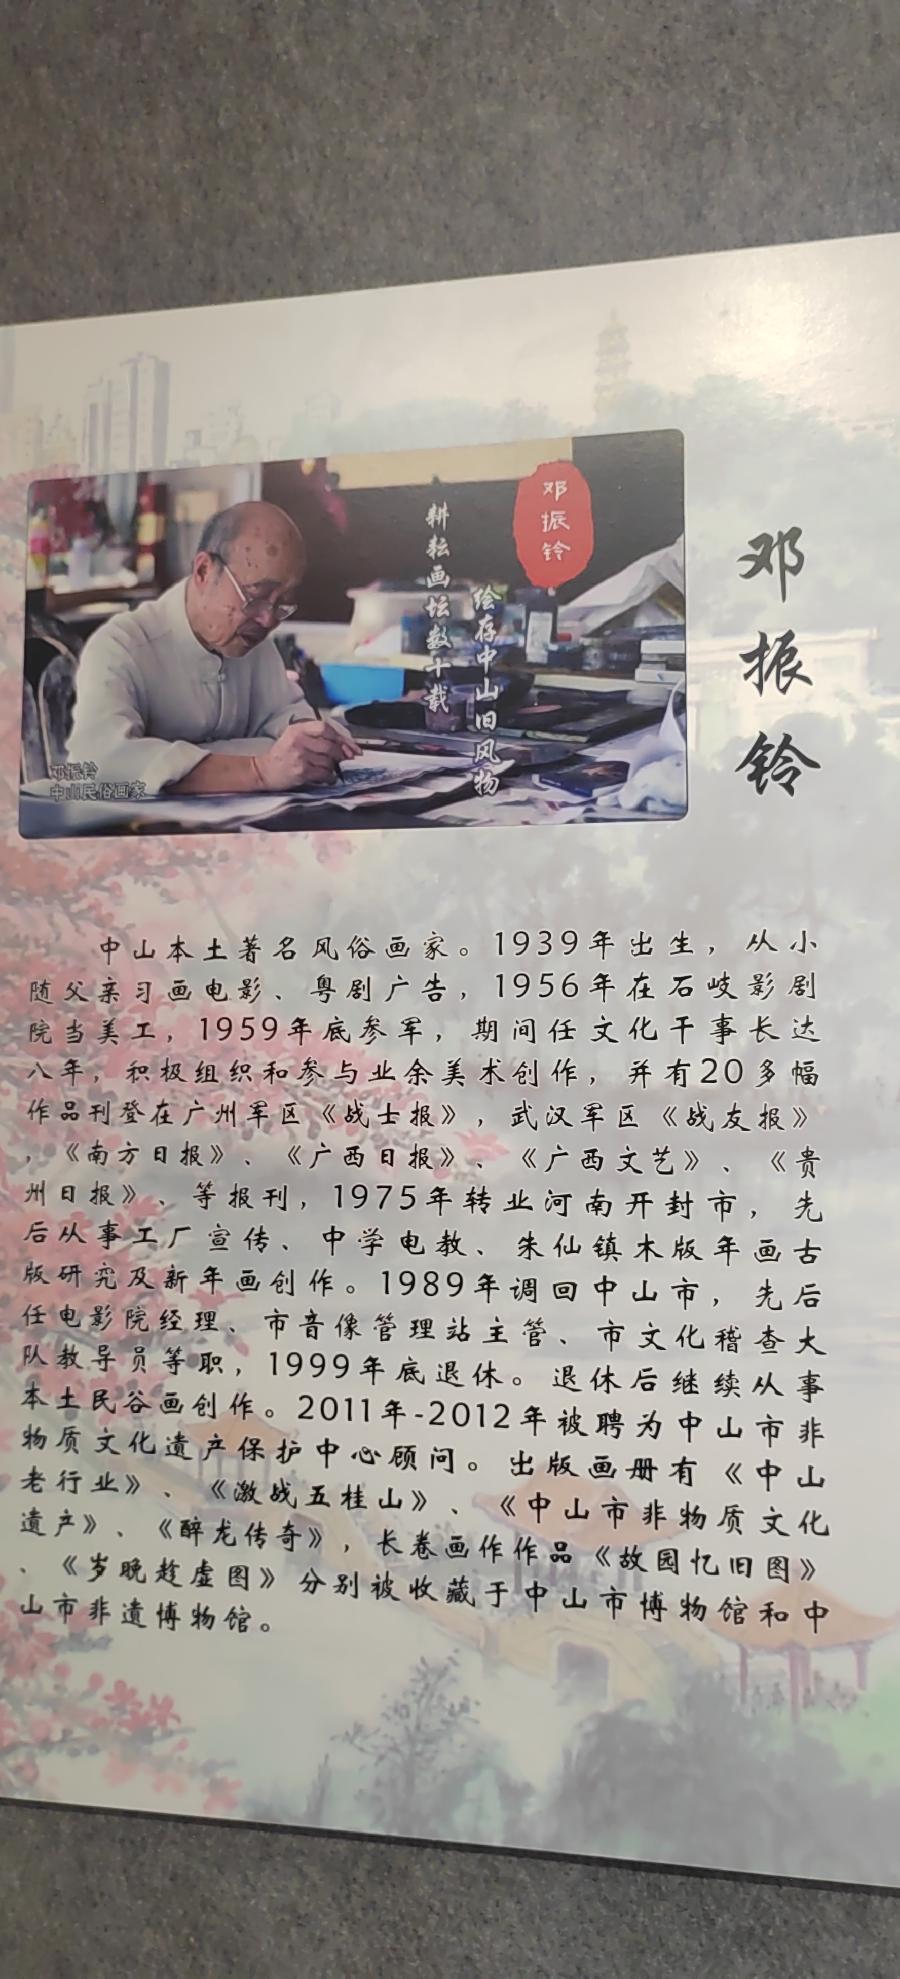 邓振铃
绘存中山旧风物
耕耘画坛数十载
邓振铃
中山民俗画家
邓振铃
中山本土著名风俗画家。1939年出生，从小
随父亲习画电影、粤剧广告，1956年在石岐影剧
院当美工，1959年底参军，期间任文化干事长达
八年，积极组织和参与业余美术创作，并有20多幅
作品刊登在广州军区《战士报》，武汉军区《战友报》
，《南方日报》、《广西日报》、《广西文艺》、《贵
州日报》、等报刊，1975年转业河南开封市，先
后从事工厂宣传、中学电教、朱仙镇木版年画古
版研究及新年画创作。1989年调回中山市，先后
任电影院经理、市音像管理站主管、市文化稽查大
队教导员等职，1999年底退休。退休后继续从事
本土民谷画创作。2011年-2012年被聘为中山市非
物质文化遗产保护中心顾问。出版画册有《中山
老行业》、《激战五桂山》、《中山市非物质文化
遗产》、《醉龙传奇》，长卷画作作品《故园忆旧图》
、《岁晚趁虚图》分别被收藏于中山市博物馆和中
山市非遗博物馆。